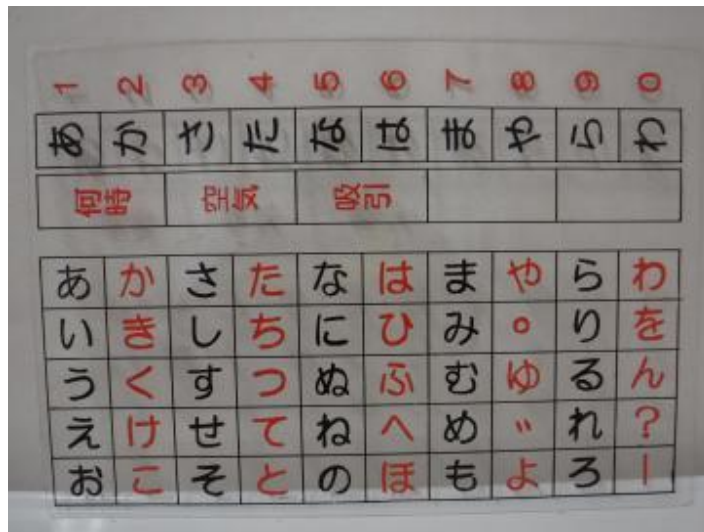 1 2 3 4 5 6 7 8 9 0
あ か さ た な は ま や ら わ
何時 空気 吸引
あ か さ た な は ま や ら わ
い き し ち に ひ み ゜ り を
う く す つ ぬ ふ む ゆ る ん
え け せ て ね へ め ゛ れ ?
お こ そ と の ほ も よ ろ ー